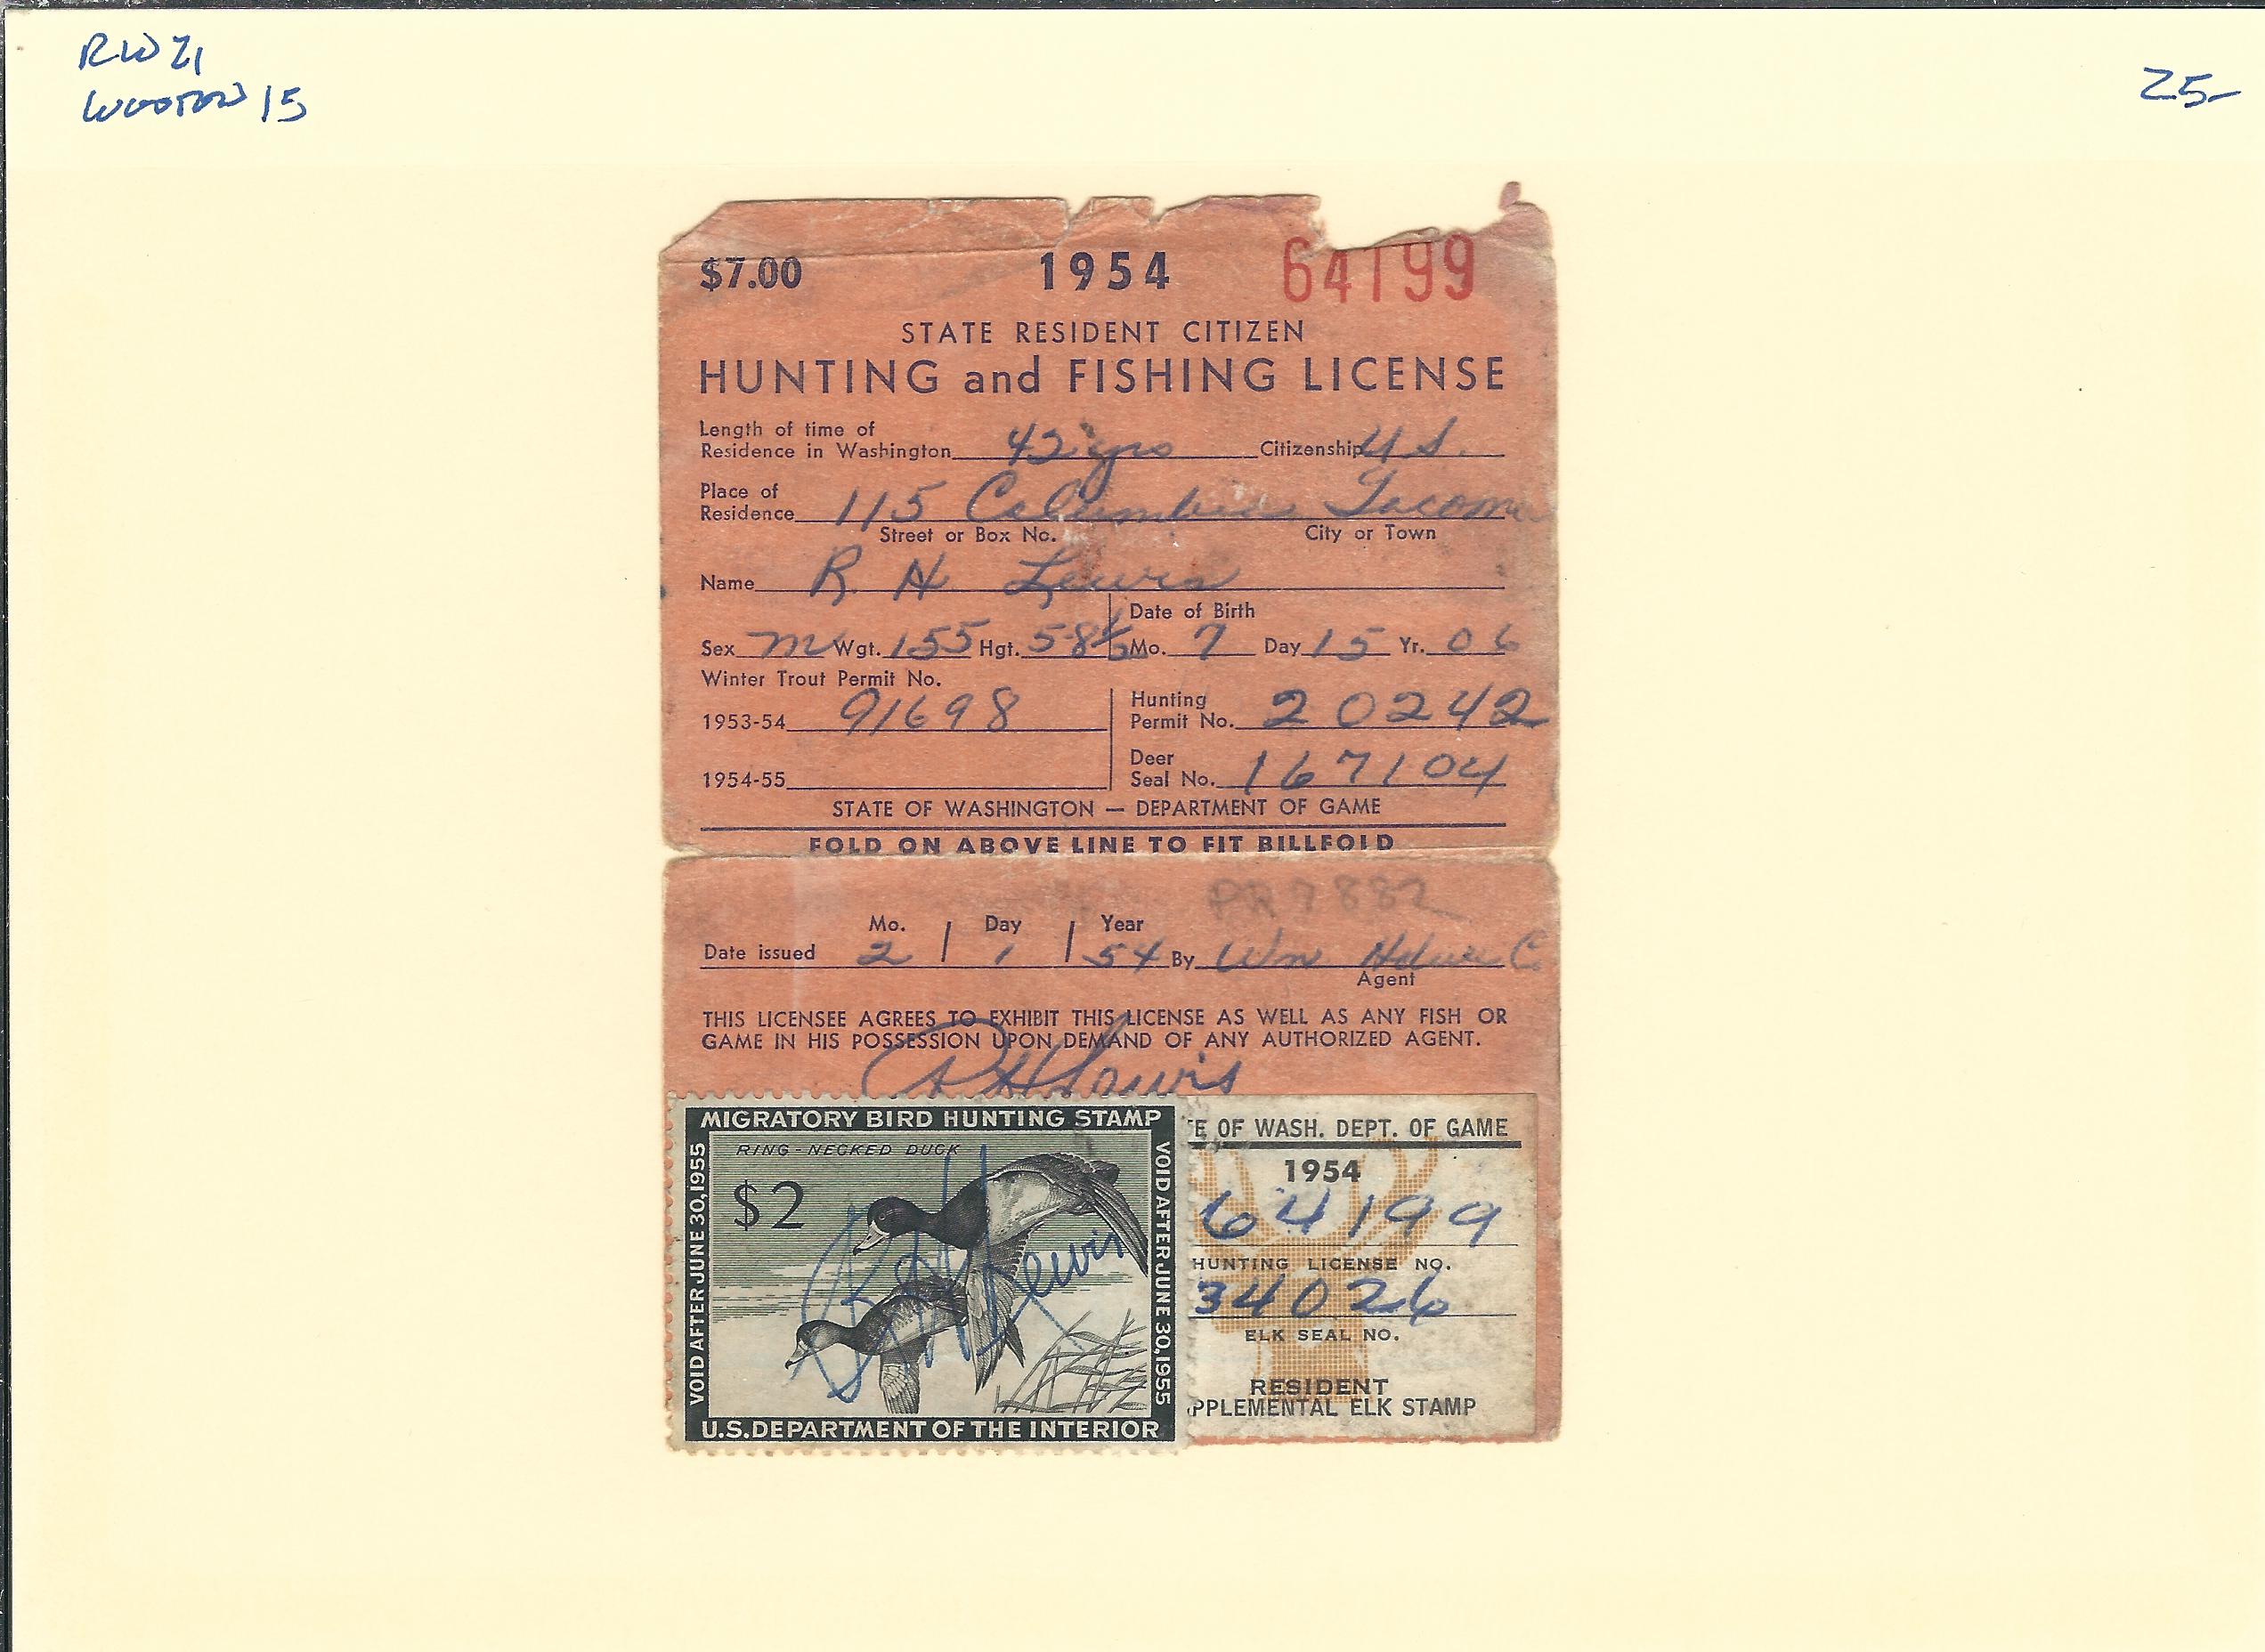 RW21
WOOTON 15
25-
$7.00 1954 64199
STATE RESIDENT CITIZEN
HUNTING and FISHING LICENSE
Length of time of
Residence in Washington 42 yrs Citizenship U S.
Place of
Residence 115 Columbia Tacoma
Street or Box No. City or Town
Name R. H. Lewis
Date of Birth
Sex M Wgt. 155 Hgt. 5-8½ Mo. 7 Day 15 Yr. 06
Winter Trout Permit No.
1953-54 91698
Hunting
Permit No. 20242
1954-55
Deer
Seal No. 167104
STATE OF WASHINGTON — DEPARTMENT OF GAME
FOLD ON ABOVE LINE TO FIT BILLFOLD
PR7882
Mo. Day Year
Date issued 2 / 1 / 54 By Wm
Agent
THIS LICENSEE AGREES TO EXHIBIT THIS LICENSE AS WELL AS ANY FISH OR
GAME IN HIS POSSESSION UPON DEMAND OF ANY AUTHORIZED AGENT.
R H Lewis
MIGRATORY BIRD HUNTING STAMP
RING-NECKED DUCK
$2
VOID AFTER JUNE 30, 1955
VOID AFTER JUNE 30, 1955
R H Lewis
U.S. DEPARTMENT OF THE INTERIOR
E OF WASH. DEPT. OF GAME
1954
64199
HUNTING LICENSE NO.
34026
ELK SEAL NO.
RESIDENT
PPLEMENTAL ELK STAMP